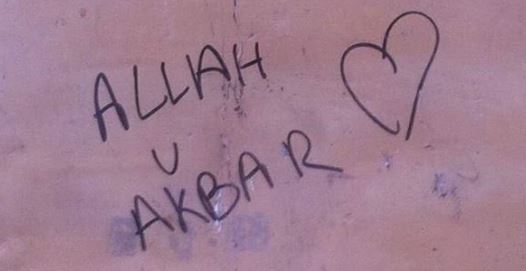 ALLAH
U
AKBAR